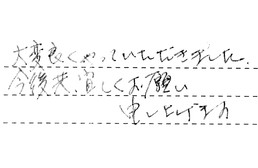 大変良くやっていただきました。
今後共、宜しくお願い
申し上げます